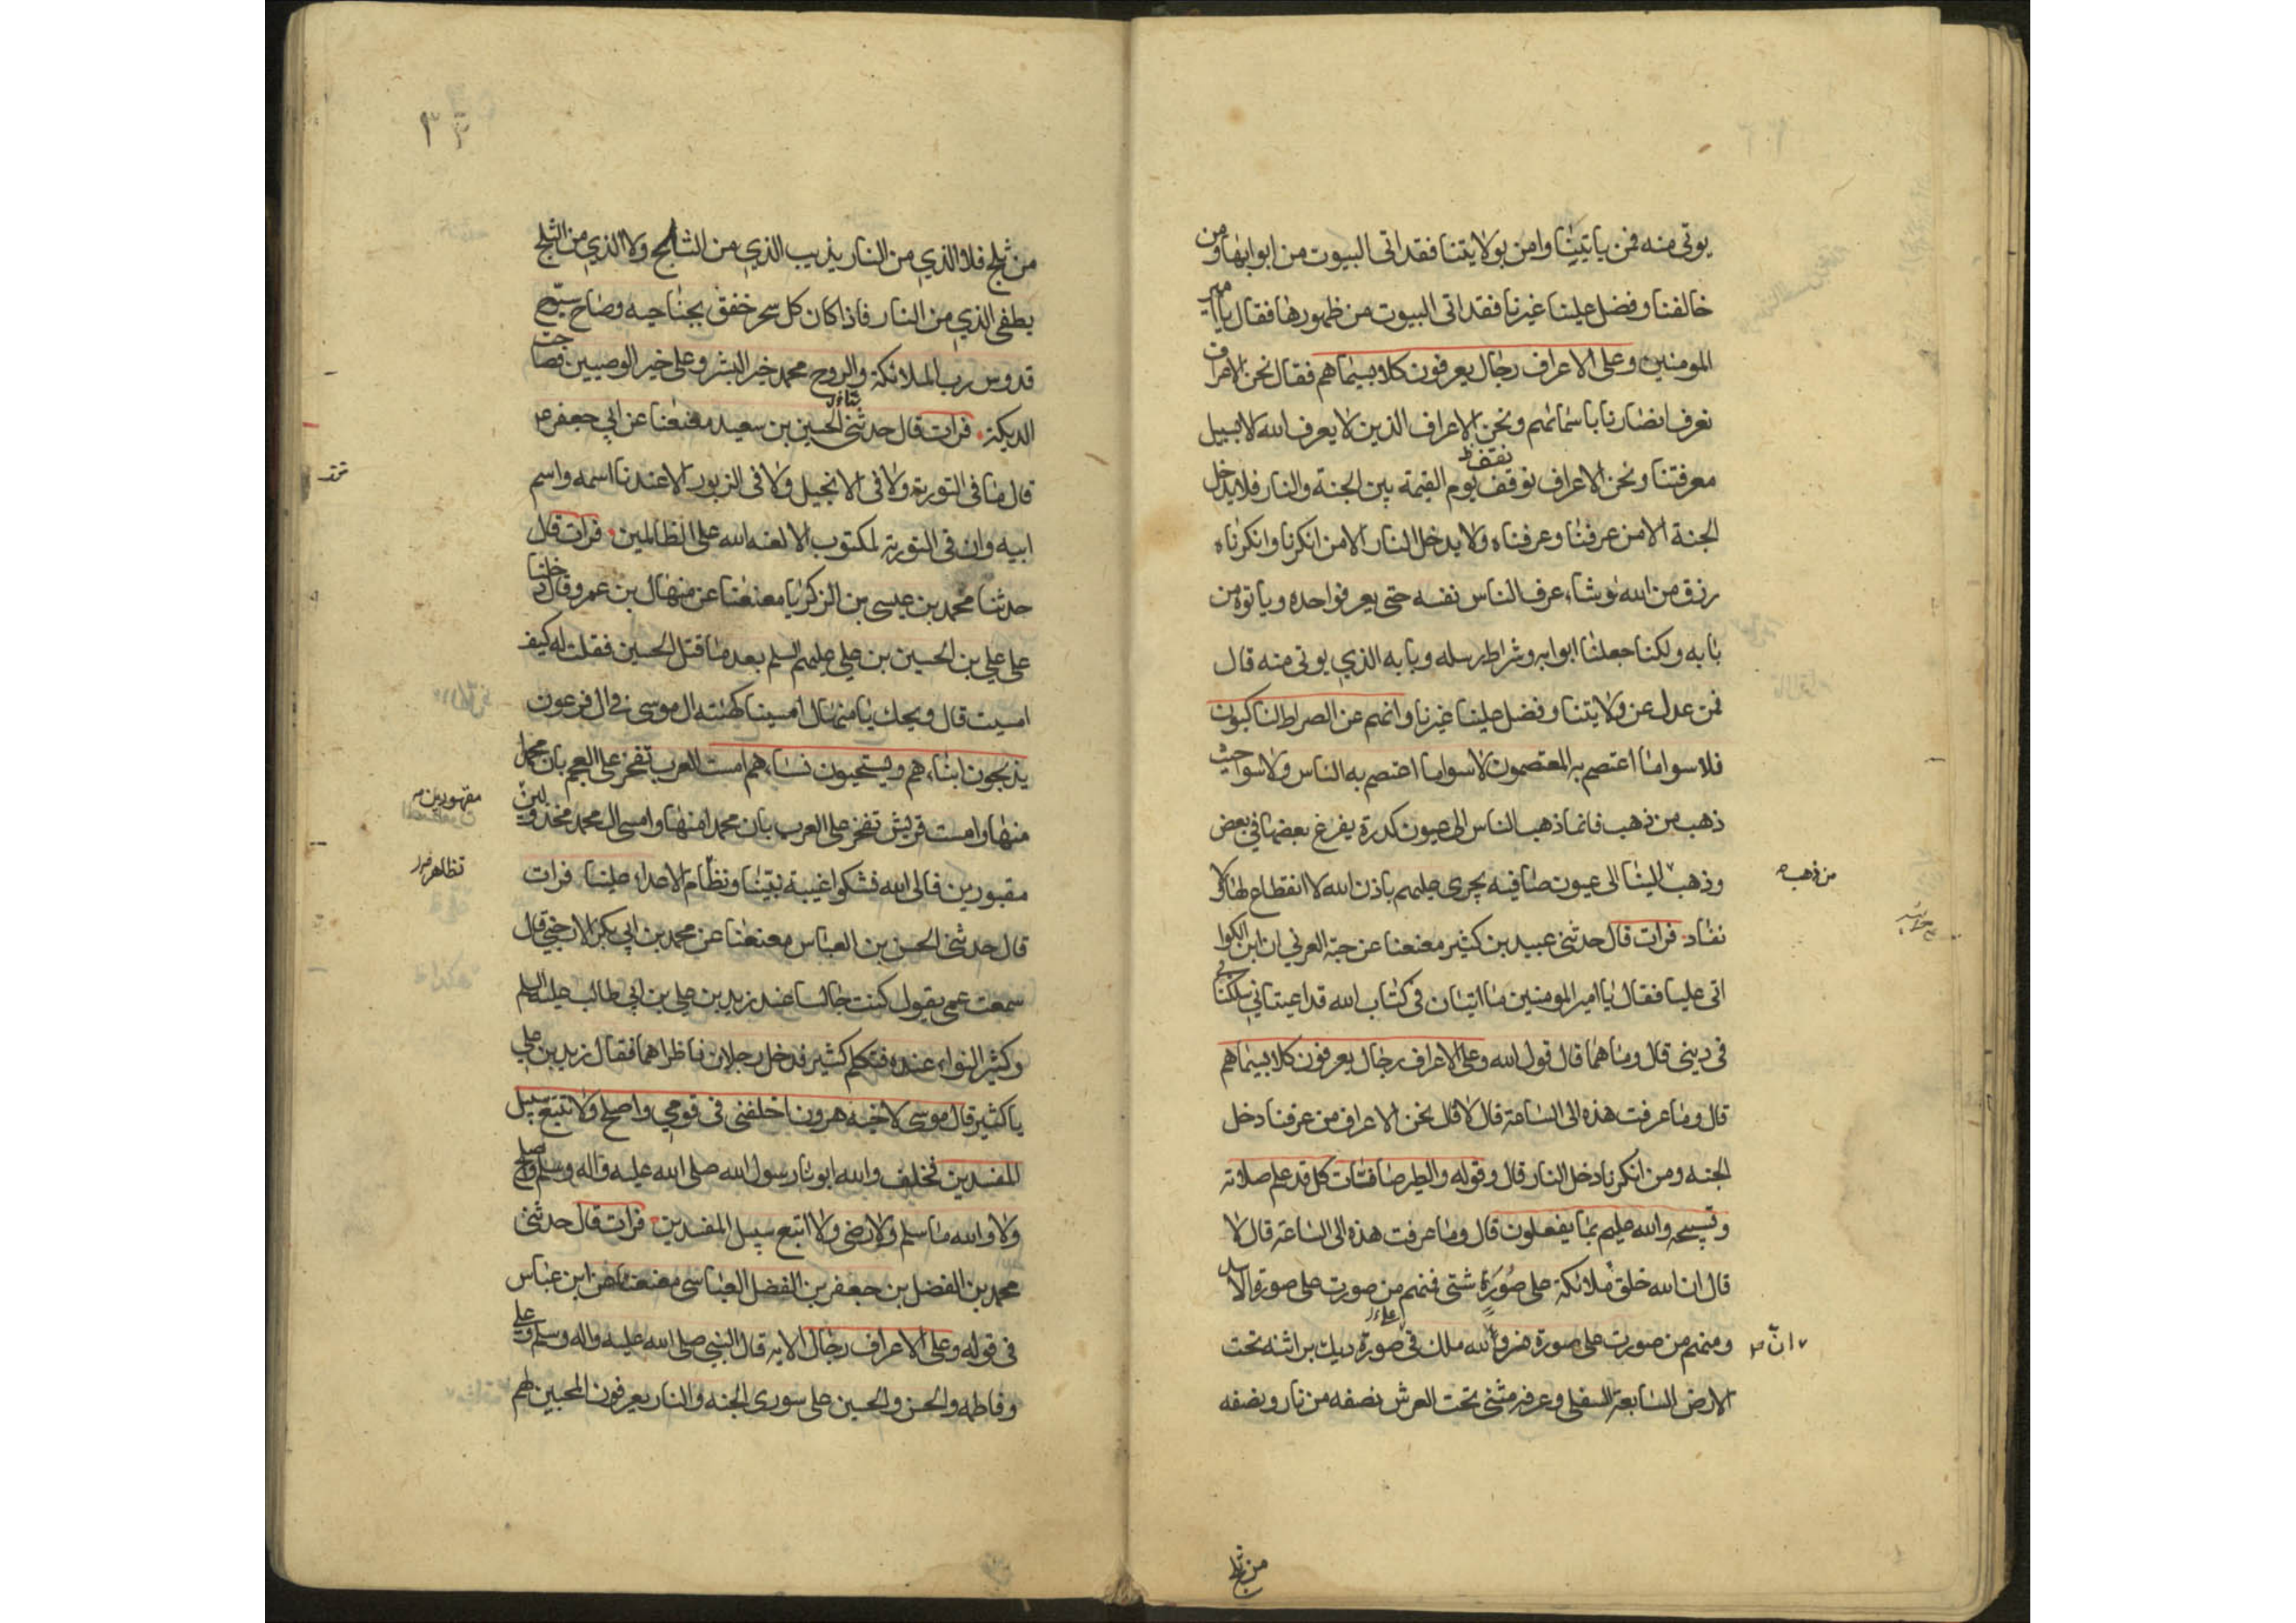 يوتى منه فمن ياتيتنا وامن بولايتنا فقد اتى البيوت من ابوابها ومن
خالفنا وفضل علينا غيرنا فقد اتى البيوت من ظهورها فقال يا امير
المومنين وعلى الاعراف رجال يعرفون كلا بسيماهم فقال نحن الاعراف
نعرف انصارنا باسمائهم ونحن الاعراف الذين لا يعرف الله لا بسبيل
معرفتنا ونحن الاعراف نوقف يوم القيمة بين الجنة والنار فلا يدخل
نقف
الجنة الا من عرفنا وعرفناه ولا يدخل النار الا من انكرنا وانكرناه
رزق من الله لو يشاء عرف الناس نفسه حتى يعرفوا حده وياتوه من
بابه ولكنا جعلنا ابوابه وشراطه رسله وبابه الذي يوتى منه قال
فمن عدل عن ولايتنا وفضل علينا غيرنا وانهم عن الصراط لناكبون
فلا سوا ما اعتصم به المعتصمون لا سوا ما اعتصم به الناس ولا سوا حيث
ذهب من ذهب فانما ذهب الناس الى عيون كدرة يفرغ بعضها في بعض
وذهب الينا الى عيون صافيه يجرى عليهم باذن الله لا انقطاع لها ولا
من ذهب
نفاد فرات قال حدثني عبيد بن كثير معنعنا عن حبة العرني ان ابن الكوا
اتى عليا فقال يا امير المومنين ما ايتان في كتاب الله قد اعيتاني وشككتا
في ديني قال وما هما قال قول الله وعلى الاعراف رجال يعرفون كلا بسيماهم
قال وما عرفت هذه الى الساعة قال لا قال نحن الاعراف من عرفنا دخل
الجنه ومن انكرنا دخل النار قال وقوله والطير صافات كل قد علم صلاته
وتسبيحه والله عليم بما يفعلون قال وما عرفت هذه الى الساعة قال لا
قال ان الله خلق ملائكة على صورة شتى فمنهم من صورت على صورة الاسد
ومنهم من صورت على صورة نسر والله ملك في صورة ديك براثنه تحت
ان
على
الارض السابعة السفلى وعرفه مثنى تحت العرش نصفه من نار ونصفه
من ثلج
من ثلج فلا الذي من النار يذيب الذي من الثلج ولا الذي من الثلج
يطفى الذي من النار فاذا كان كل سحر خفق بجناحيه وصاح سبوح
قدوس رب الملائكة والروح محمد خير البشر وعلى خير الوصيين فصاحت
الديكة فرات قال حدثني الحسين بن سعيد معنعنا عن ابي جعفر ع
قال ما في التورية ولا في الانجيل ولا في الزبور الا عندنا اسمه واسم
ابيه وان في التورية لمكتوب الا لعنه الله على الظالمين فرات قال
حدثنا محمد بن عيسى بن الزكريا معنعنا عن منهال بن عمرو قال دخلنا
على علي بن الحسين بن علي عليهم السلم بعد ما قتل الحسين فقلت له كيف
امسيت قال ويحك يا منهال امسينا كهيئه ال موسى في ال فرعون
يذبحون ابناءهم ويستحيون نساءهم امست العرب تفخر على العجم بان محمدا
منها وامست قريش تفخر على العرب بان محمدا منها وامسى ال محمد مخذولين
مقهورين
مقبورين فالى الله نشكوا غيبة نبينا وتظاهر الاعداء علينا فرات
تظاهر
قال حدثني الحسن بن العباس معنعنا عن محمد بن ابي بكر الارحبي قال
سمعت عمي يقول كنت جالسا عند زيد بن علي بن ابي طالب عليه السلم
وكثير النواء عنده فتكلم كثير فدخل رجلان فاظراهما فقال زيد بن علي
يا كثير قال موسى لاخيه هرون اخلفني في قومي واصلح ولا تتبع سبيل
المفسدين فخلف والله ابونا رسول الله صلى الله عليه واله وسلم واصلح
ولا والله ما سلم ولا رضى ولا اتبع سبيل المفسدين فرات قال حدثني
محمد بن الفضل بن جعفر بن الفضل العباسي معنعنا عن ابن عباس
في قوله وعلى الاعراف رجال الايه قال النبي صلى الله عليه واله وسلم وعلى
وفاطمه والحسن والحسين على سورى الجنه والنار يعرفون المحبين لهم